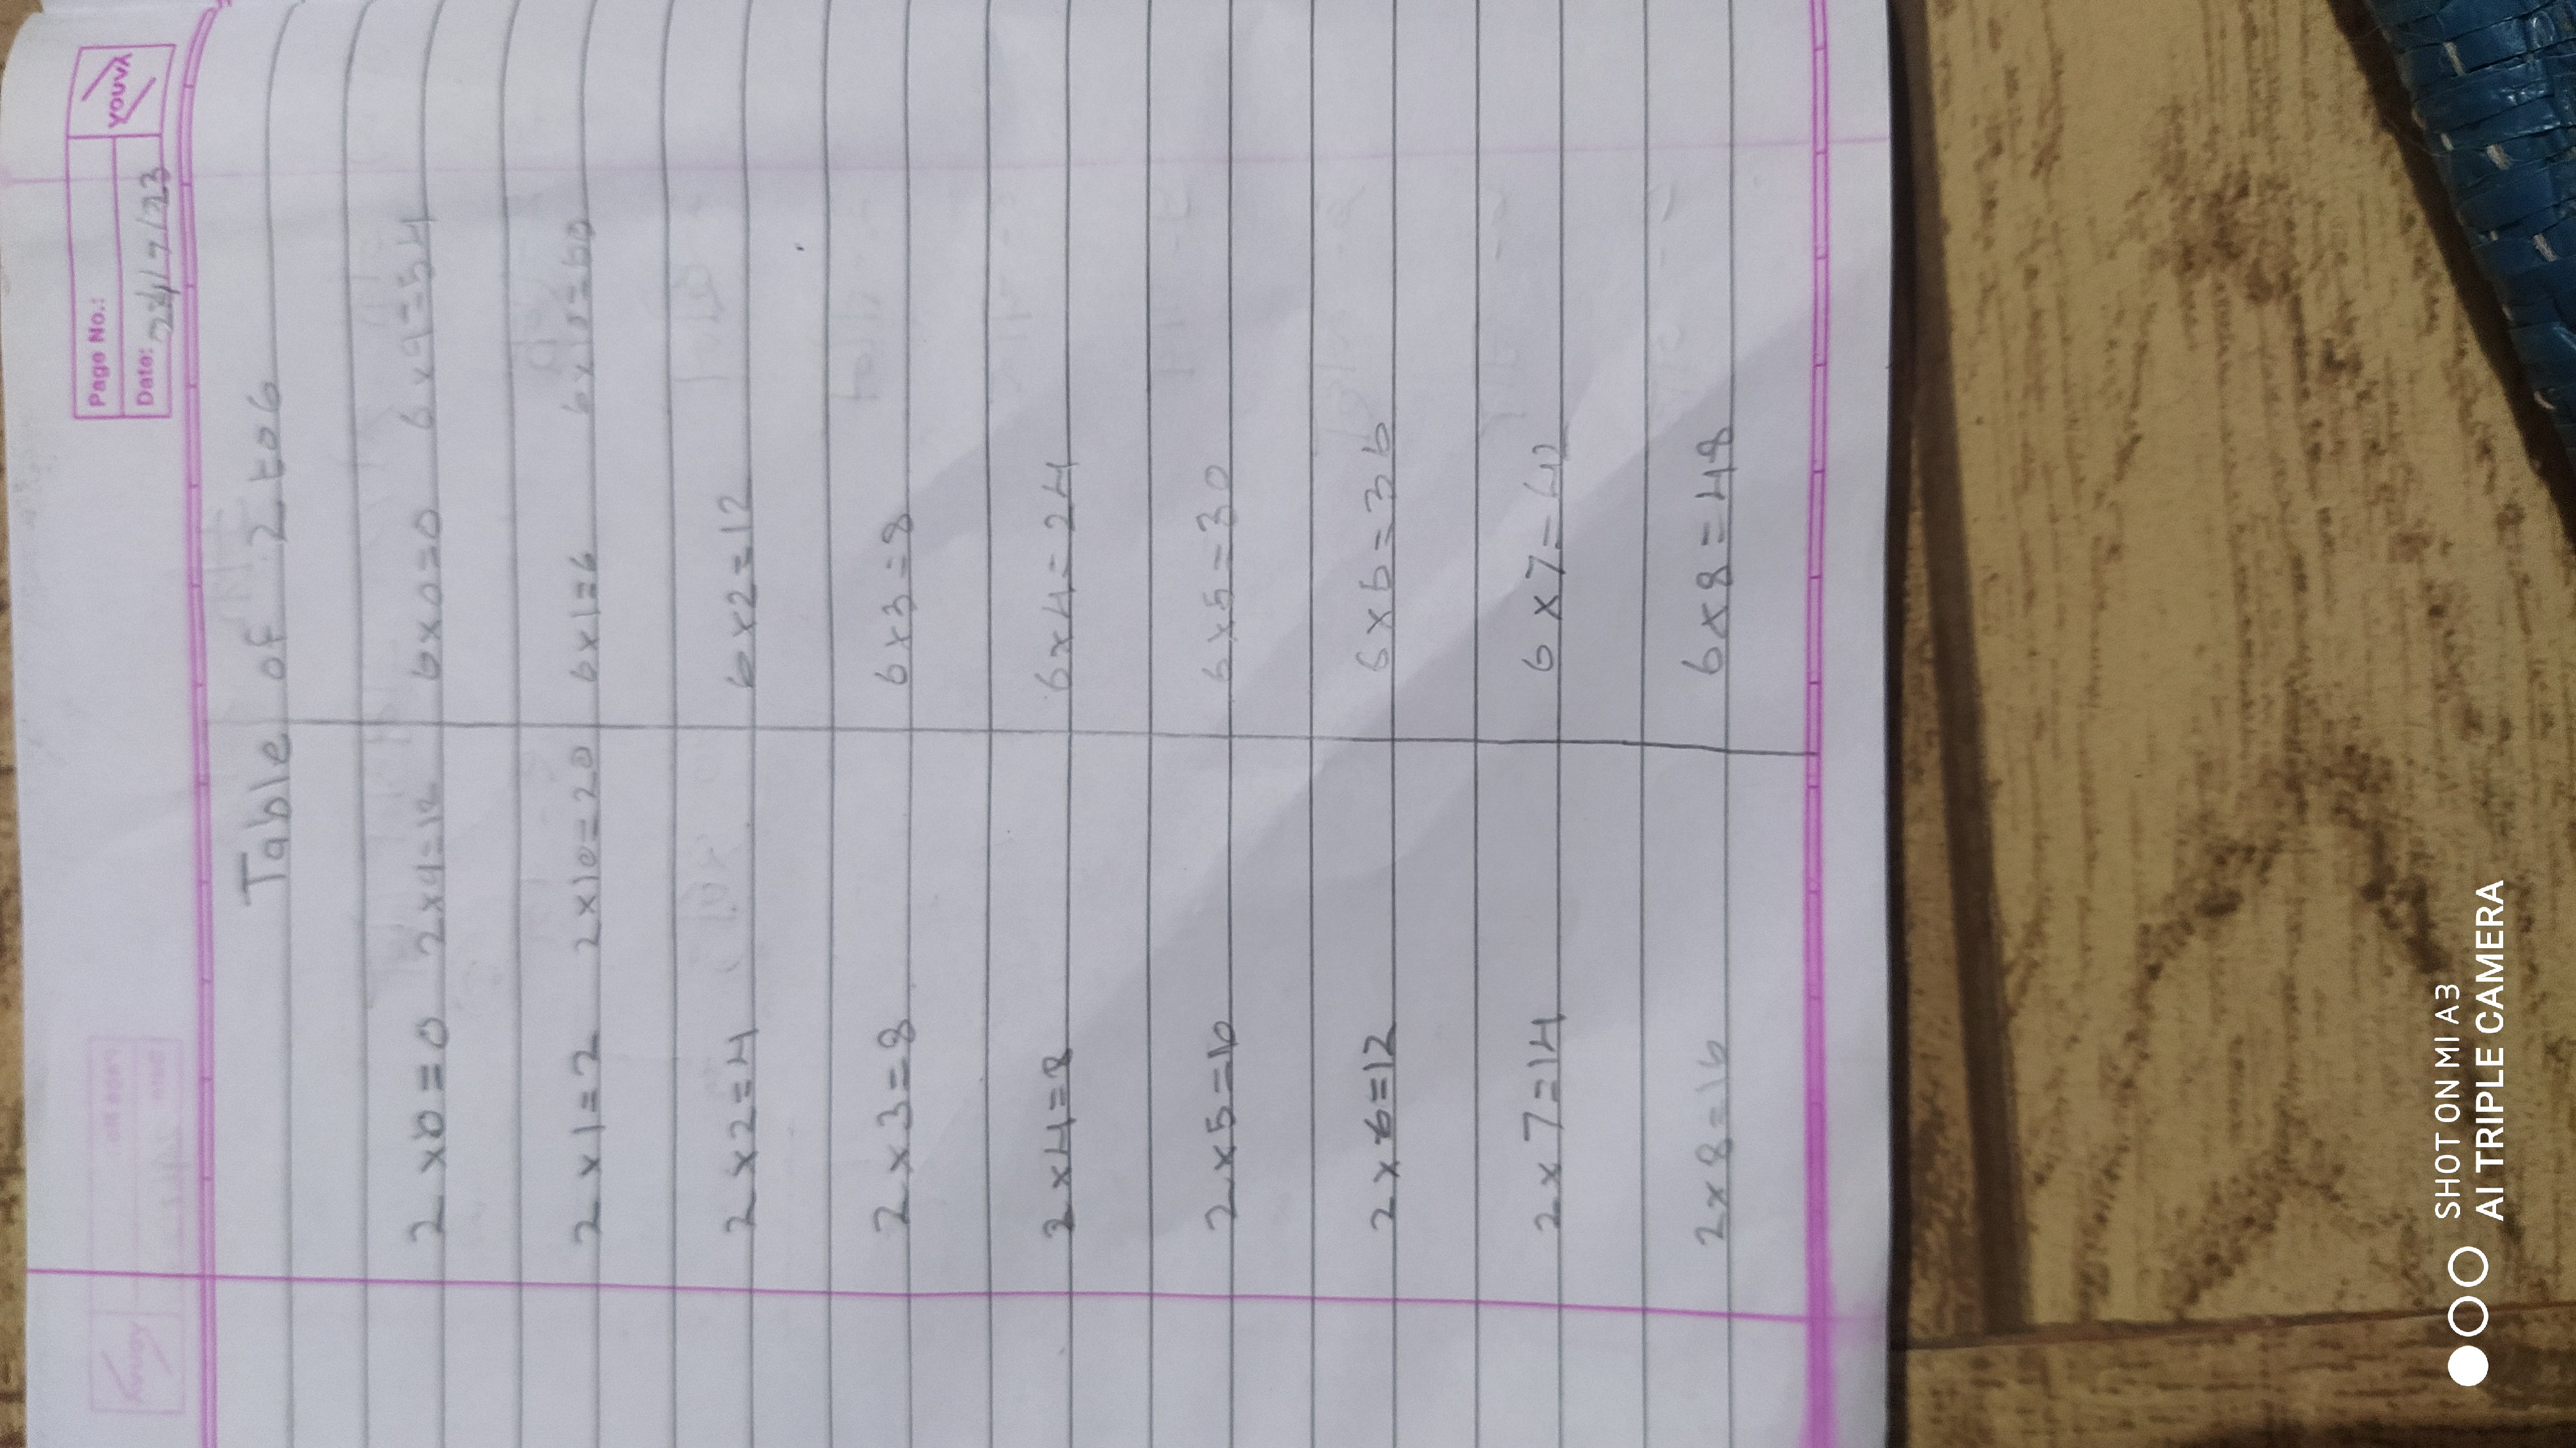 Page No.:
Date: 24/7/23
YOUVA
Table of 2 to 6
2×0=0 2×9=12 6×0=0 6×9=54
2×1=2 2×10=20 6×1=6 6×10=60
2×2=4 6×2=12
2×3=8 6×3=8
2×4=8 6×4=24
2×5=10 6×5=30
2×6=12 6×6=36
2×7=14 6×7=42
2×8=16 6×8=48
SHOT ON MI A3
AI TRIPLE CAMERA